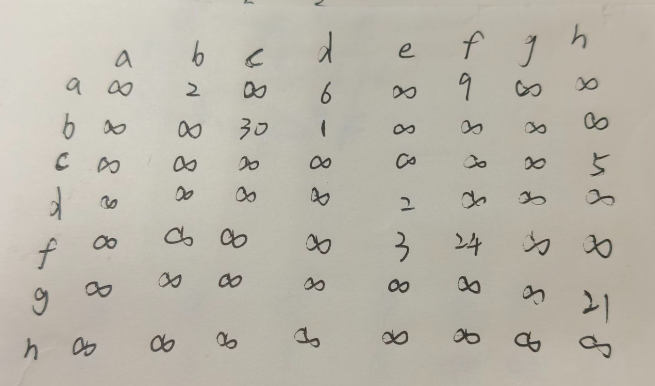 a b c d e f g h
a ∞ 2 ∞ 6 ∞ 9 ∞ ∞
b ∞ ∞ 30 1 ∞ ∞ ∞ ∞
c ∞ ∞ ∞ ∞ ∞ ∞ ∞ 5
d ∞ ∞ ∞ ∞ 2 ∞ ∞ ∞
f ∞ ∞ ∞ ∞ 3 24 ∞ ∞
g ∞ ∞ ∞ ∞ ∞ ∞ ∞ 21
h ∞ ∞ ∞ ∞ ∞ ∞ ∞ ∞